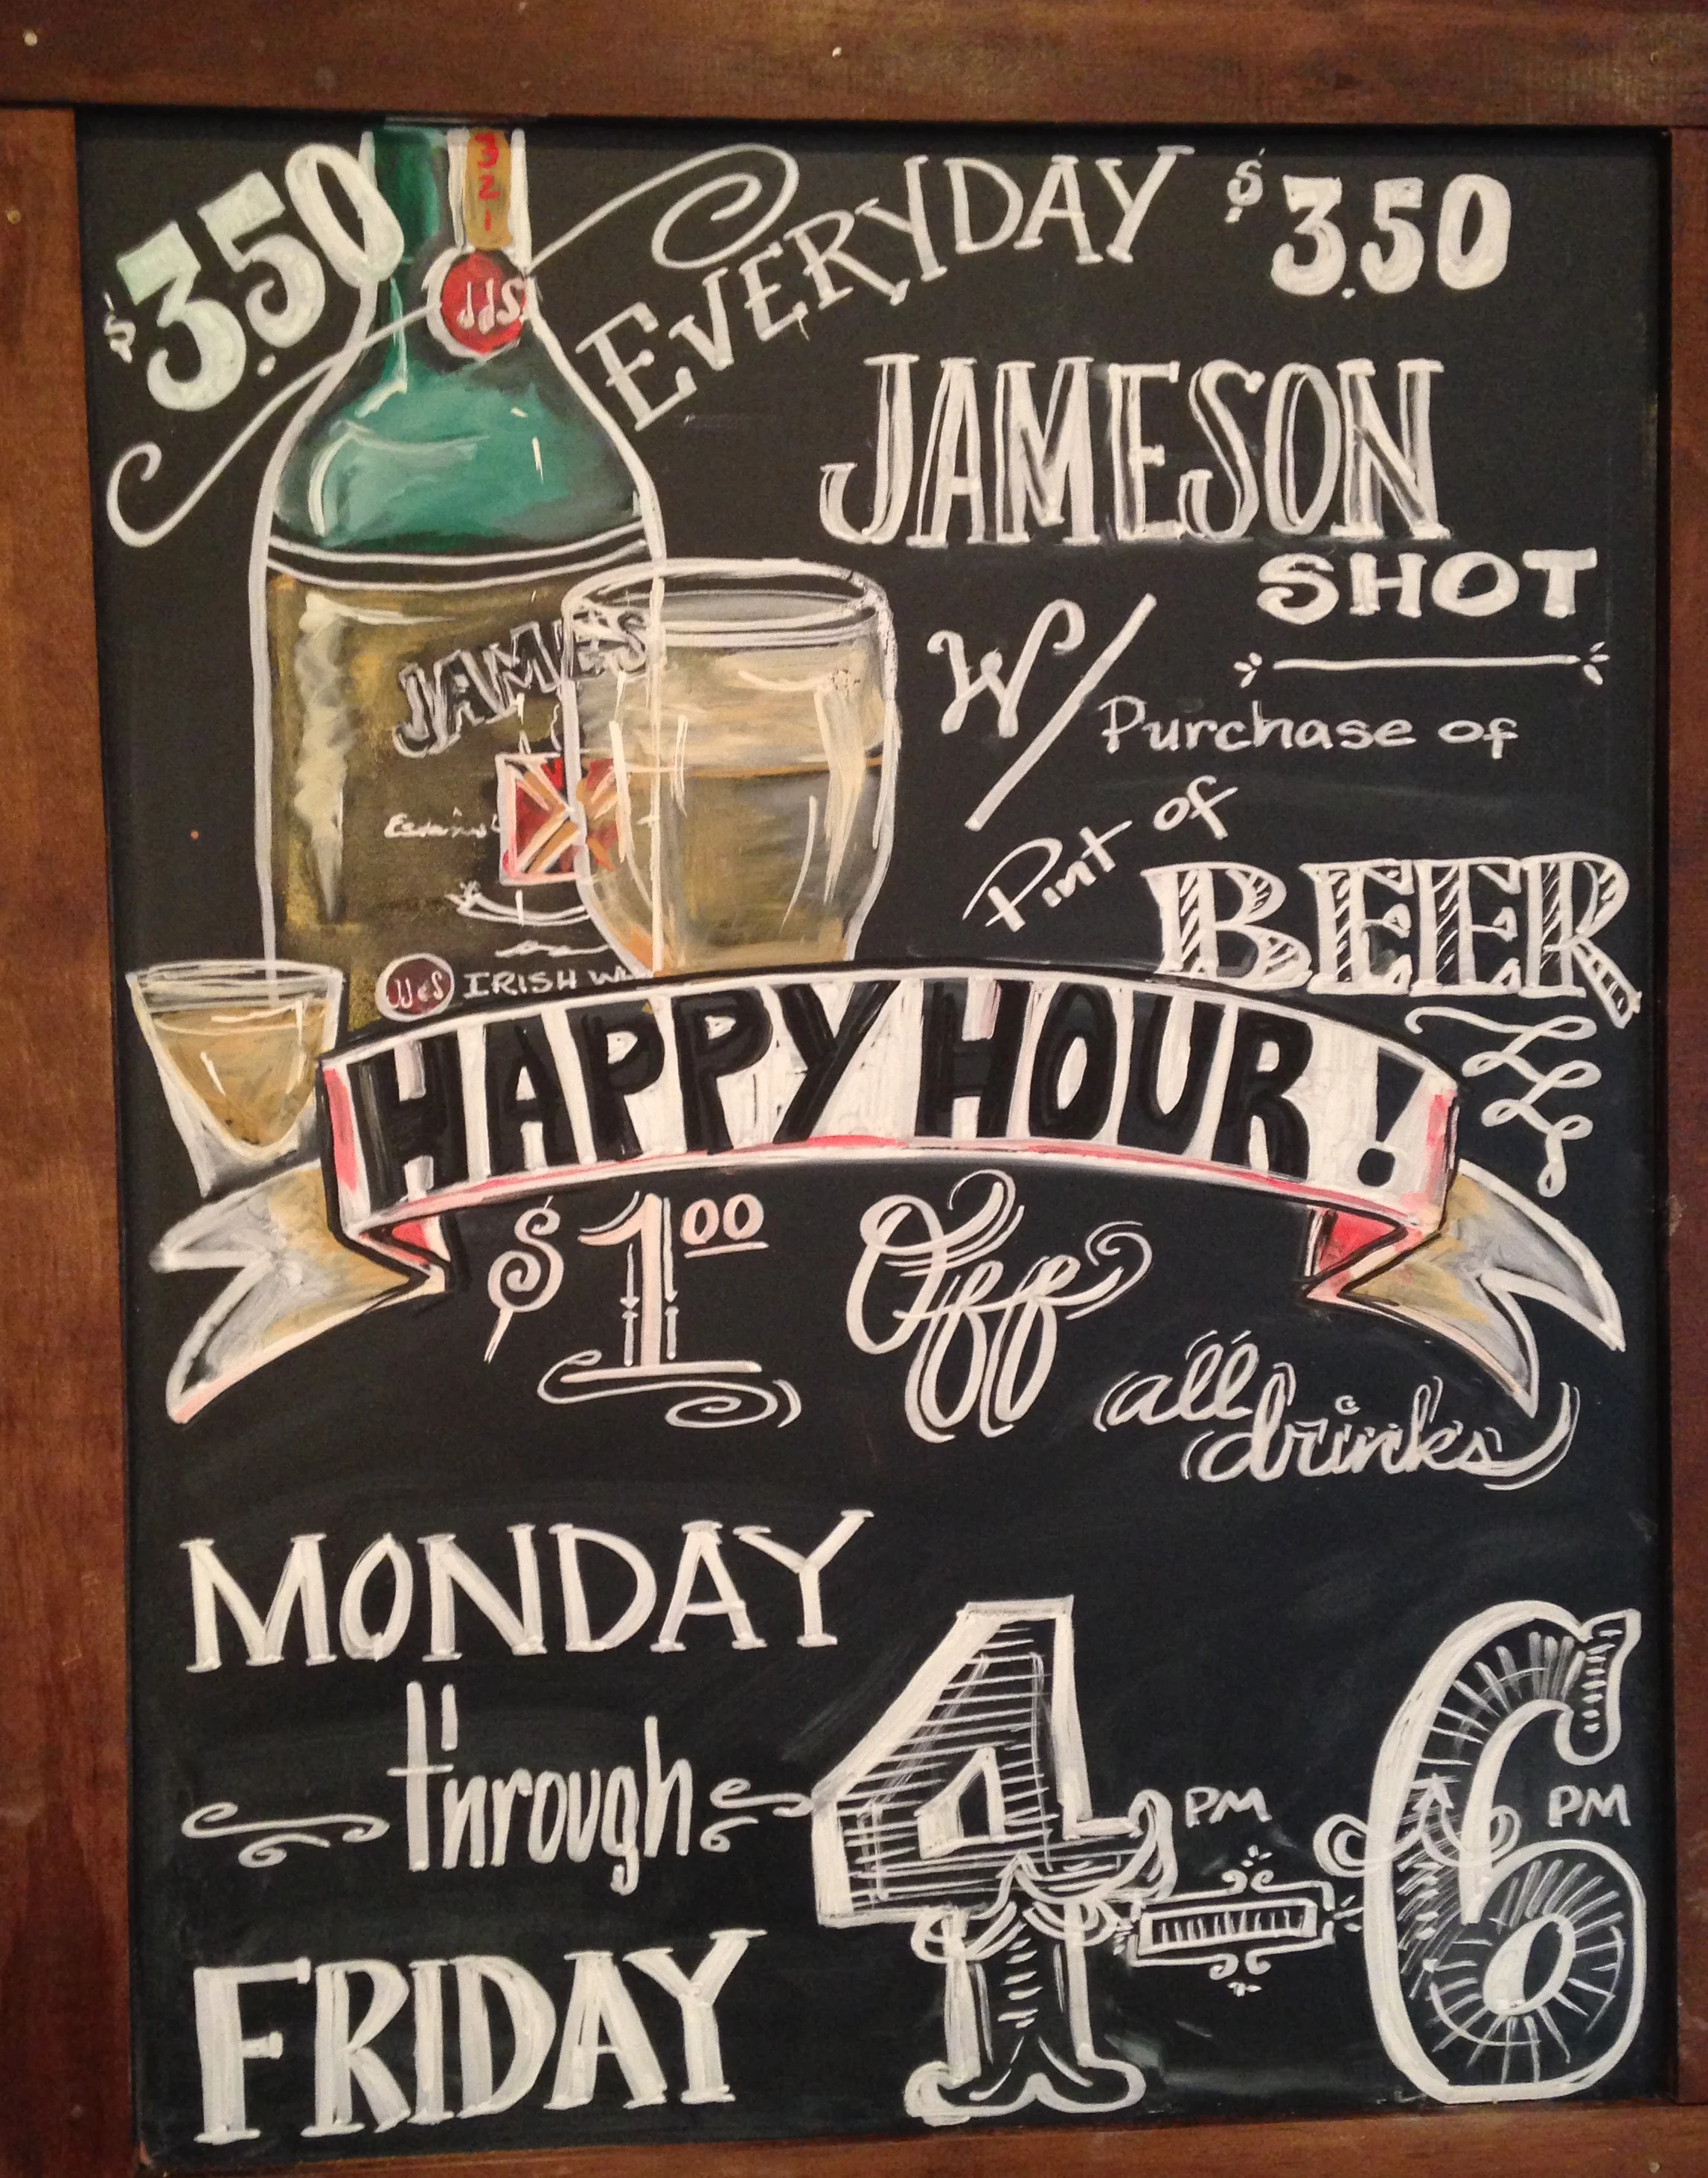 $3.50
321
JJS
EVERYDAY $3.50
JAMESON
SHOT
W/ Purchase of
Pint of
BEER
JAMES
JJ&S IRISH W
HAPPY HOUR!
$1.00 Off
all
drinks
MONDAY
through
FRIDAY
4 PM - 6 PM